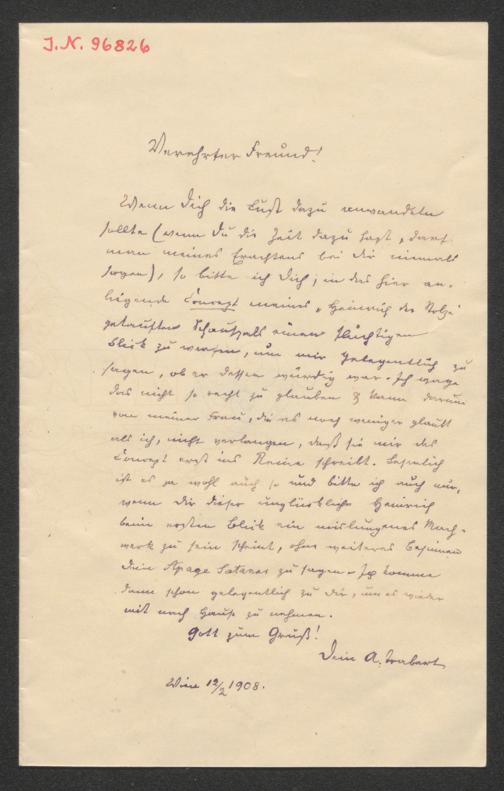 J.N. 96826
Verehrter Freund!
Wenn Dich die Lust dazu anwandeln
sollte (wenn Du die Zeit dazu hast, darf
man meines Erachtens bei Dir niemals
sagen), so bitte ich Dich, in das hier an-
liegende Concept meines „Heinrich der Stolze"
getauften Schauspiels einen flüchtigen
Blick zu werfen, um mir gelegentlich zu
sagen, ob er dessen würdig war. Ich wage
das nicht so recht zu glauben & kann darum
von meiner Frau, die es noch weniger glaubt
als ich, nicht verlangen, daß sie mir das
Concept erst ins Reine schreibt. Leserlich
ist es ja wohl auch so und bitte ich auch nur,
wenn Dir dieser unglückliche Heinrich
beim ersten Blick ein mislungenes Mach-
werk zu sein scheint, ohne weiteres Besinnen
Dein Apage Satanas zu sagen. Ich komme
dann schon gelegentlich zu Dir, um es wieder
mit nach Hause zu nehmen.
Gott zum Gruß!
Dein A. Trabert
Wien 12/2 1908.